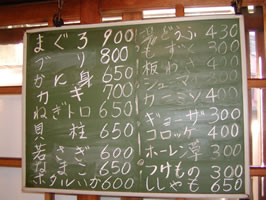 まぐろ 900
ブリ 800
かに身 650
カキ 700
ねぎトロ 650
貝柱 650
若さぎ 600
なまこ 650
ホタルいか 600
湯どうふ 430
もずく 300
板わさ 300
シューマイ 300
ウインナー 350
ギョーザ 300
コロッケ 400
ホーレン草 300
つけもの 300
ししゃも 650